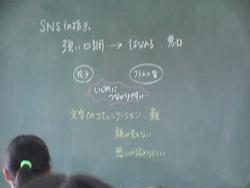 SNSの指示
強い口調 → はなれる 悪口
いじめに
つながりやすい
・文字でのコミュニケーション 難
顔が見えない
思いが伝わりにくい